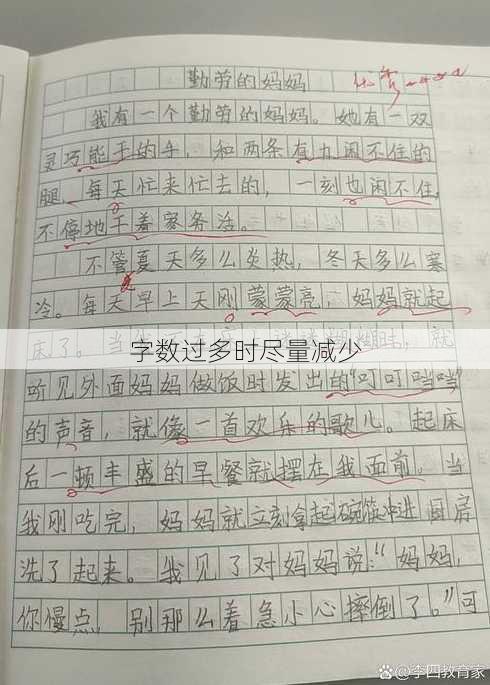 勤劳的妈妈 优秀
我有一个勤劳的妈妈。她有一双
灵巧能干的手，和两条有力闲不住的
腿，每天忙来忙去的，一刻也闲不住，
不停地干着家务活。
不管夏天多么炎热，冬天多么寒
冷。每天早上天刚蒙蒙亮，妈妈就起
床了。当我
就
字数过多时尽量减少
听见外面妈妈做饭时发出的“叮叮当当”
的声音，就像一首欢乐的歌儿。起床
后一顿丰盛的早餐就摆在我面前。当
我刚吃完，妈妈就立刻拿起碗筷冲进厨房
洗了起来。我见了对妈妈说：“妈妈，
你慢点，别那么着急小心摔倒了。”可
李四教育家